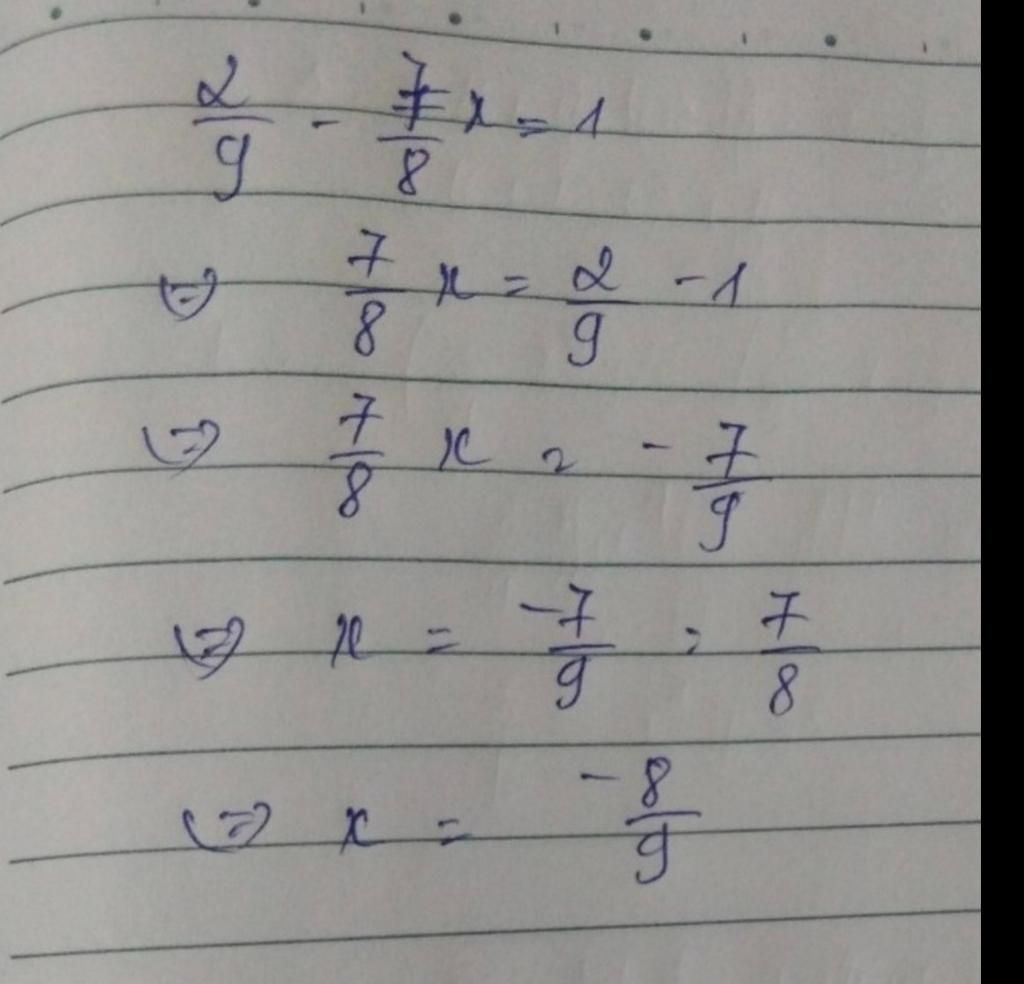 2/9 - 7/8 x = 1
⇔ 7/8 x = 2/9 - 1
⇔ 7/8 x = - 7/9
⇔ x = -7/9 : 7/8
⇔ x = -8/9